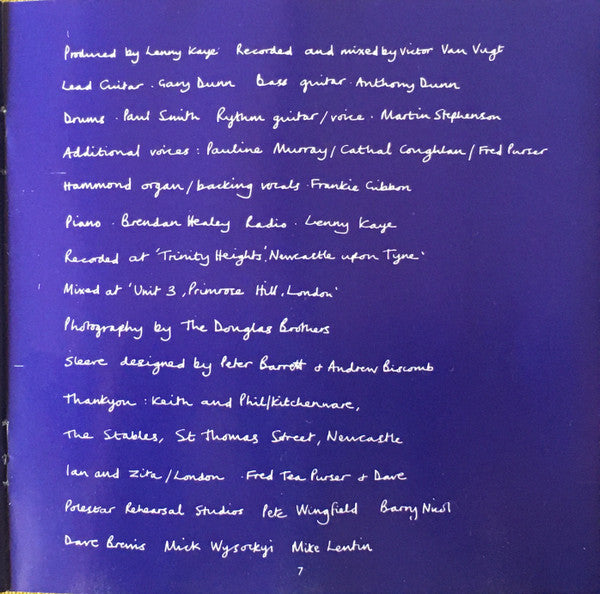 Produced by Lenny Kaye Recorded and mixed by Victor Van Vugt
Lead Guitar · Gary Dunn Bass guitar · Anthony Dunn
Drums · Paul Smith Rythm guitar/voice · Martin Stephenson
Additional voices : Pauline Murray/Cathal Coughlan/Fred Purser
Hammond organ/backing vocals · Frankie Gibbon
Piano · Brendan Healey Radio · Lenny Kaye
Recorded at 'Trinity Heights', Newcastle upon Tyne·
Mixed at 'Unit 3, Primrose Hill, London'
Photography by The Douglas Brothers
Sleeve designed by Peter Barrett & Andrew Biscomb
Thankyou : Keith and Phil/Kitchenware,
The Stables, St Thomas Street, Newcastle
Ian and Zita/London · Fred Tea Purser & Dave
Polestar Rehearsal Studios Pete Wingfield Barry Nicol
Dave Mick Wysockyi Mike Lentin
7